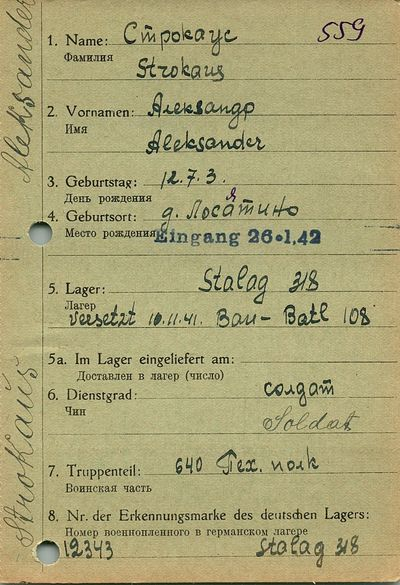 Aleksander
Strokaus
1. Name: Строкаус 559
Фамилия
Strokaus
2. Vornamen: Александр
Имя
Aleksander
3. Geburtstag: 12.7.3.
День рождения
4. Geburtsort: д. Лосятино
Место рождения
Eingang 26.1.42
5. Lager: Stalag 318
Лагерь
Versetzt 10.11.41. Bau-Batl 108
5a. Im Lager eingeliefert am:
Доставлен в лагерь (число)
6. Dienstgrad: солдат
Чин Soldat
7. Truppenteil: 640 Тех. полк
Воинская часть
8. Nr. der Erkennungsmarke des deutschen Lagers:
Номер военнопленного в германском лагере
12343 Stalag 318